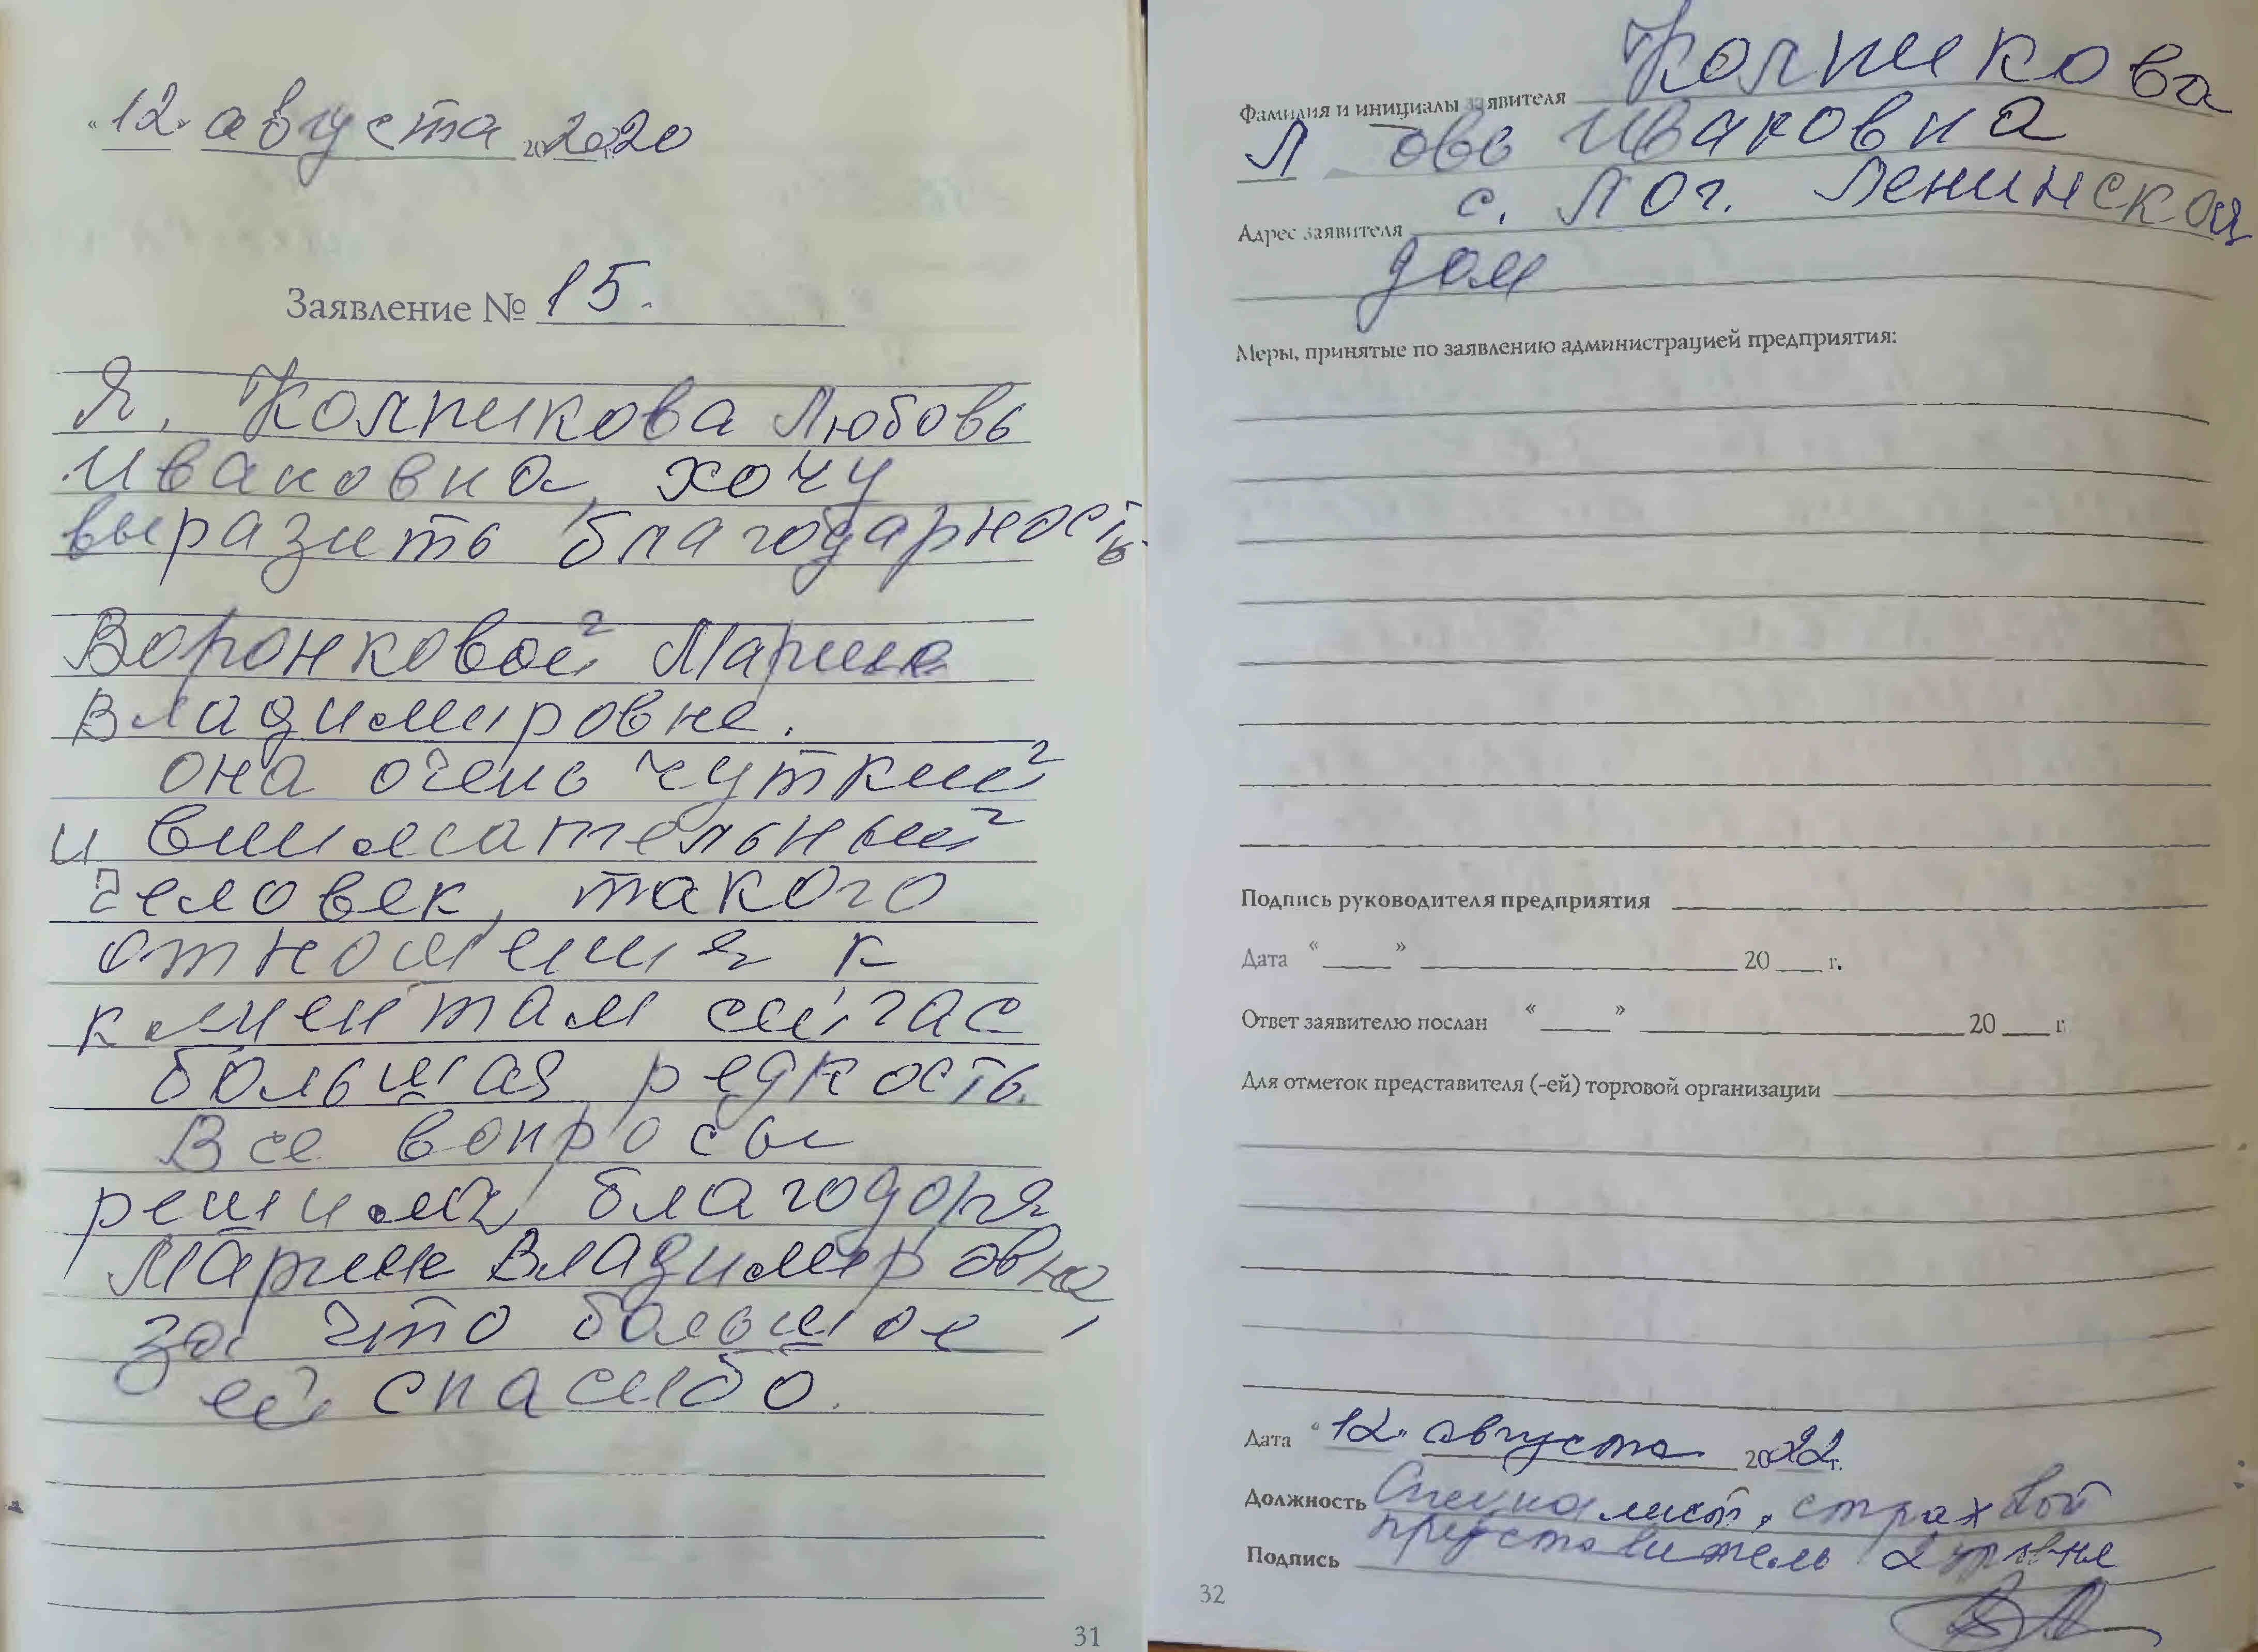 «12» августа 202020
Заявление № 15.
Я, Колпикова Любовь
Ивановна, хочу
выразить благодарность
Воронковой Марине
Владимировне.
она очень чуткий
и внимательный
человек, такого
отношения к
клиентам сейчас
большая редкость.
Все вопросы
решила благодоря
Марине Владимеровна,
за что большое
ей спасибо.
31
Фамилия и инициалы заявителя Колпикова
Л овь Ивановна
Адрес заявителя с. Лог. Ленинская
дом
Меры, принятые по заявлению администрацией предприятия:
Подпись руководителя предприятия
Дата « » 20 г.
Ответ заявителю послан « » 20 г.
Для отметок представителя (-ей) торговой организации
Дата «12» августа 2022г.
Должность Специалист, страховой
Подпись представитель 2 уровня
32